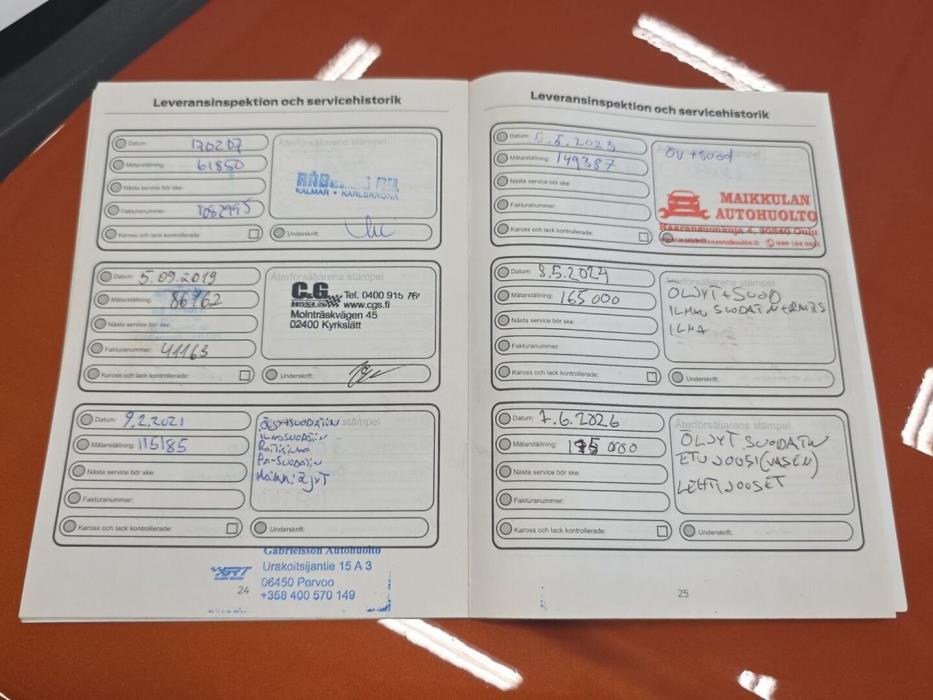 Leveransinspektion och servicehistorik
Datum: 170207
Mätarställning: 61850
Nästa service bör ske:
Fakturanummer: 1082995
Kaross och lack kontrollerade:
Återförsäljarens stämpel
KALMAR • KARLSKRONA
Underskrift:
Datum: 5.09.2019
Mätarställning: 86762
Nästa service bör ske:
Fakturanummer: 41163
Kaross och lack kontrollerade:
Återförsäljarens stämpel
C.G. Tel. 0400 915 76
www.cgs.fi
Molnträskvägen 45
02400 Kyrkslätt
Underskrift:
Datum: 9.2.2021
Mätarställning: 115185
Nästa service bör ske:
Fakturanummer:
Kaross och lack kontrollerade:
ÖLJY+SUODATIN
ILMASUODATIN
RAITISILMA
PA-SUODATIN
Underskrift:
Gabrielsson Autohuolto
Urakoitsijantie 15 A 3
06450 Porvoo
+358 400 570 149
24
Leveransinspektion och servicehistorik
Datum: 5.5.2023
Mätarställning: 149387
Nästa service bör ske:
Fakturanummer:
Kaross och lack kontrollerade:
ÖV + SUOD
MAIKKULAN
AUTOHUOLTO
Haaransuonkuja 4, 90240 Oulu
Datum: 8.5.2024
Mätarställning: 165 000
Nästa service bör ske:
Fakturanummer:
Kaross och lack kontrollerade:
Återförsäljarens stämpel
ÖLJYT + SUOD
ILMAN SUODATIN + RAITIS
ILMA
Underskrift:
Datum: 7.6.2026
Mätarställning: 175 000
Nästa service bör ske:
Fakturanummer:
Kaross och lack kontrollerade:
Återförsäljarens stämpel
ÖLJYT SUODATIN
ETU JOUSI (VASEN)
LEHTIJOUSET
Underskrift:
25